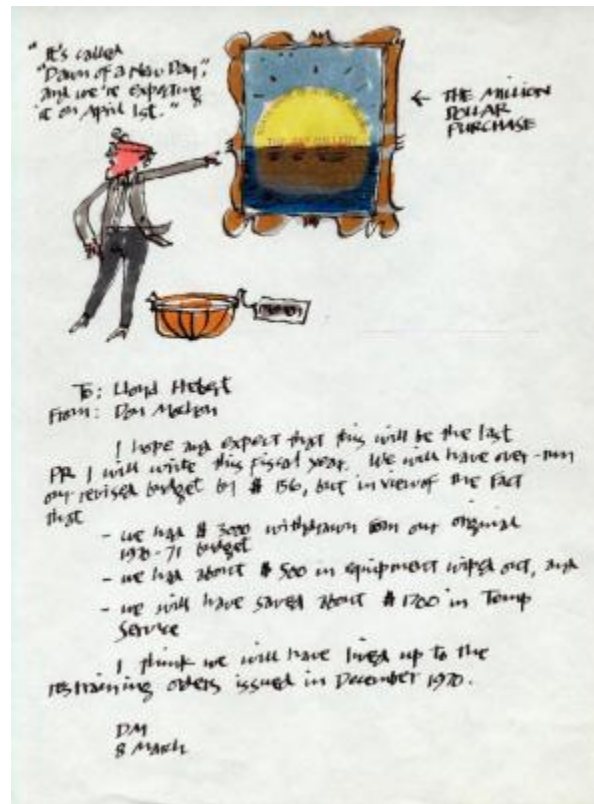 "It's called
"Dawn of a New Day,"
and we're expecting
it on April 1st."
← THE MILLION
DOLLAR
PURCHASE
THE GALLERY
To: Lloyd
From: Don
I hope and expect that this will be the last
PR I will write this fiscal year. We will have over-run
our revised budget by $156, but in view of the fact
that
- we had $3000 withdrawn from our original
1970-71 budget
- we had about $500 in equipment wiped out, and
- we will have saved about $1700 in Temp
Service
I think we will have lived up to the
restraining orders issued in December 1970.
DM
8 March